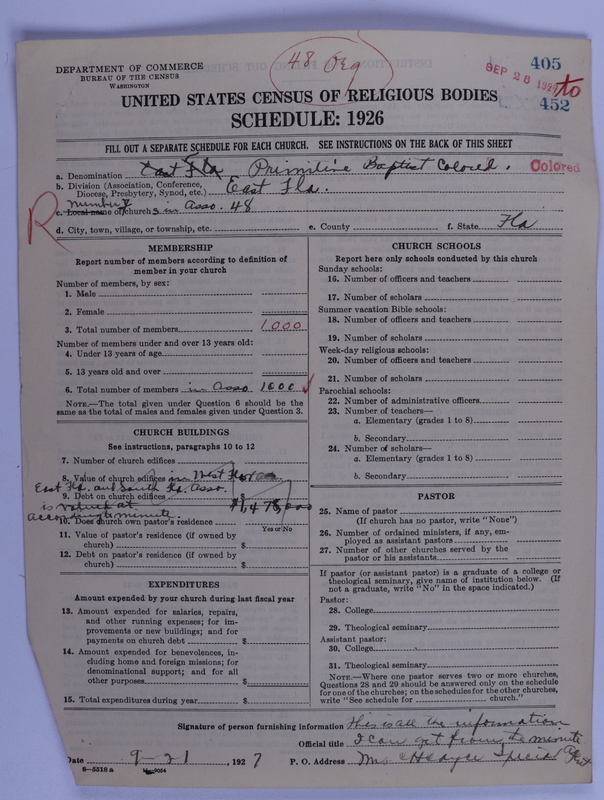 48 Org
DEPARTMENT OF COMMERCE
BUREAU OF THE CENSUS
WASHINGTON
SEP 28 1927
405
to
452
UNITED STATES CENSUS OF RELIGIOUS BODIES
SCHEDULE: 1926
FILL OUT A SEPARATE SCHEDULE FOR EACH CHURCH. SEE INSTRUCTIONS ON THE BACK OF THIS SHEET
a. Denomination East Fla Primitive Baptist Colored. Colored
b. Division (Association, Conference, Diocese, Presbytery, Synod, etc.) East Fla.
R
Number of
c. Local name of church s in Asso. 48
d. City, town, village, or township, etc. e. County f. State Fla
MEMBERSHIP
Report number of members according to definition of
member in your church
Number of members, by sex:
1. Male
2. Female
3. Total number of members 1000
Number of members under and over 13 years old:
4. Under 13 years of age
5. 13 years old and over
6. Total number of members in Asso. 1000
NOTE.—The total given under Question 6 should be
the same as the total of males and females given under Question 3.
CHURCH BUILDINGS
See instructions, paragraphs 10 to 12
7. Number of church edifices
8. Value of church edifices in West Fla
East Fla. and South Fla. Asso.
9. Debt on church edifices
is valued at $1,478,000
according to minute.
10. Does church own pastor's residence
Yes or No
11. Value of pastor's residence (if owned by
church) $
12. Debt on pastor's residence (if owned by
church) $
EXPENDITURES
Amount expended by your church during last fiscal year
13. Amount expended for salaries, repairs,
and other running expenses; for im-
provements or new buildings; and for
payments on church debt $
14. Amount expended for benevolences, in-
cluding home and foreign missions; for
denominational support; and for all
other purposes $
15. Total expenditures during year $
CHURCH SCHOOLS
Report here only schools conducted by this church
Sunday schools:
16. Number of officers and teachers
17. Number of scholars
Summer vacation Bible schools:
18. Number of officers and teachers
19. Number of scholars
Week-day religious schools:
20. Number of officers and teachers
21. Number of scholars
Parochial schools:
22. Number of administrative officers
23. Number of teachers—
a. Elementary (grades 1 to 8)
b. Secondary
24. Number of scholars—
a. Elementary (grades 1 to 8)
b. Secondary
PASTOR
25. Name of pastor
(If church has no pastor, write "None")
26. Number of ordained ministers, if any, em-
ployed as assistant pastors
27. Number of other churches served by the
pastor or his assistants
If pastor (or assistant pastor) is a graduate of a college or
theological seminary, give name of institution below. (If
not a graduate, write "No" in the space indicated.)
Pastor:
28. College
29. Theological seminary
Assistant pastor:
30. College
31. Theological seminary
NOTE.—Where one pastor serves two or more churches,
Questions 28 and 29 should be answered only on the schedule
for one of the churches; on the schedules for the other churches,
write "See schedule for church."
Signature of person furnishing information This is all the information
Official title I can get from the minute
Date 9-21, 1927 P. O. Address
8—5518 a